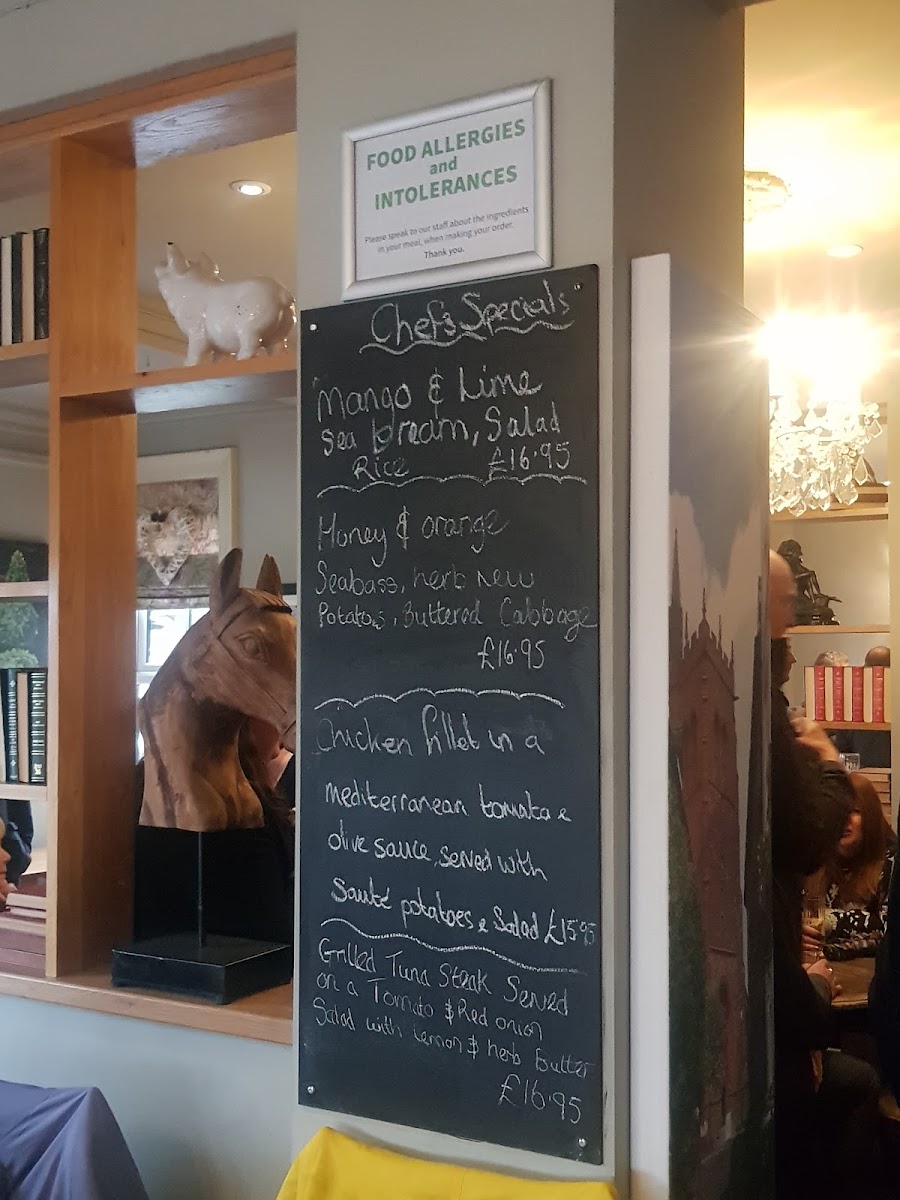 FOOD ALLERGIES
and
INTOLERANCES
Please speak to our staff about the ingredients
in your meal, when making your order.
Thank you.
Chef's Specials
Mango & Lime
Sea bream, Salad
Rice £16.95
Honey & orange
Seabass, herb new
Potatos, Buttered Cabbage
£16.95
Chicken fillet in a
mediterranean tomato &
olive sauce, served with
Sauté potatoes & Salad £15.95
Grilled Tuna Steak Served
on a Tomato & Red onion
Salad with lemon & herb Butter
£16.95